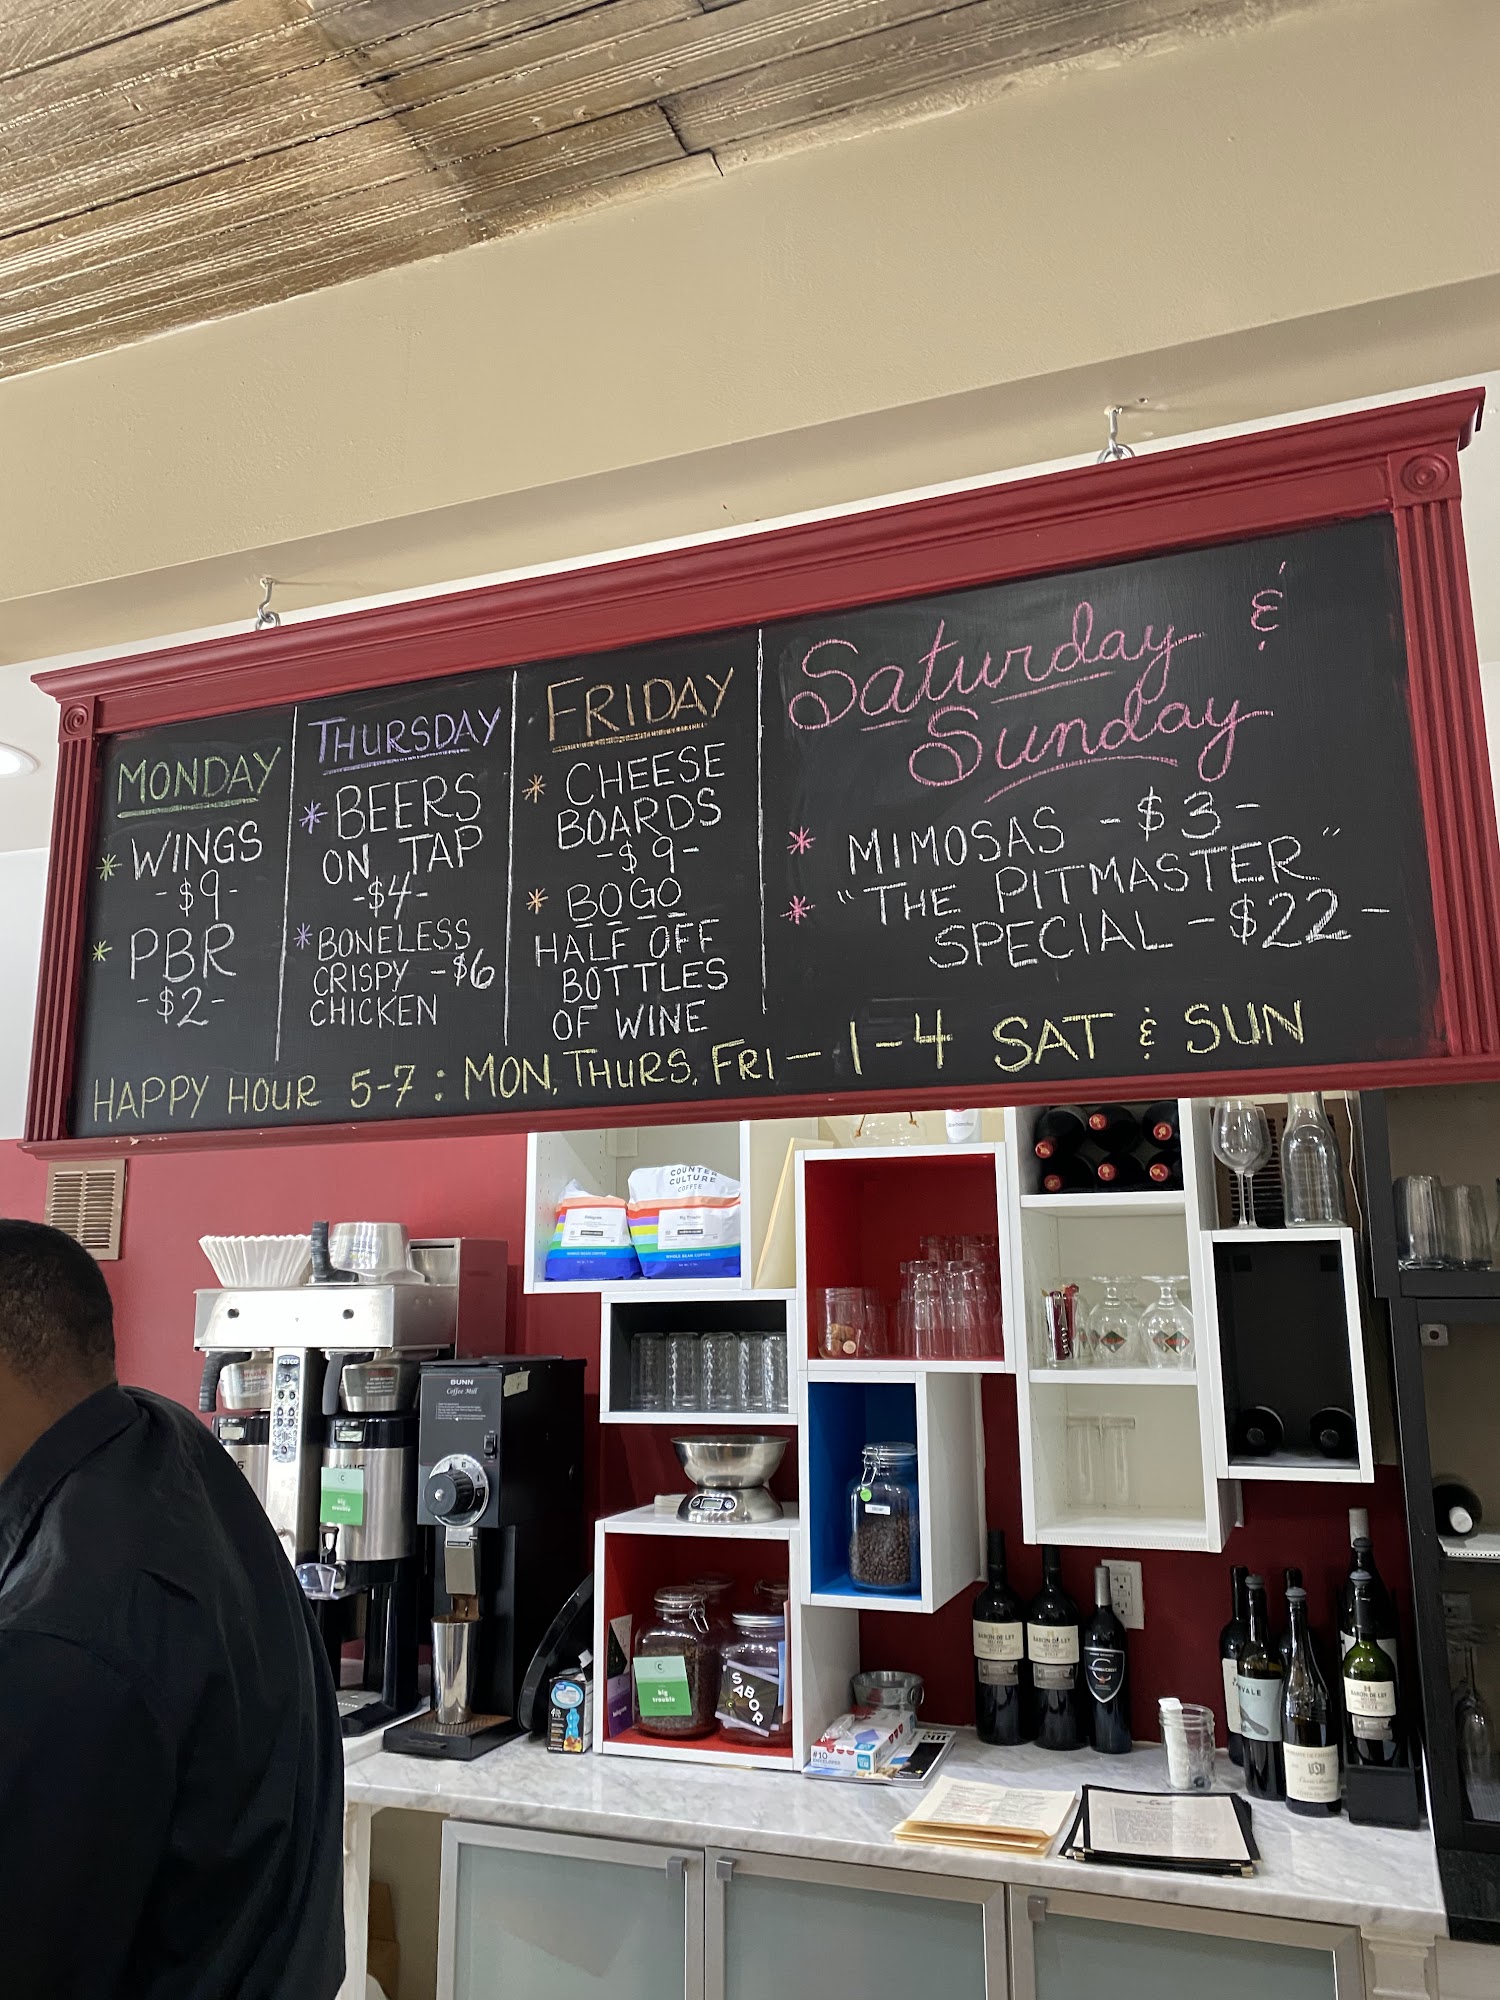 MONDAY
* WINGS
-$9-
* PBR
-$2-
THURSDAY
* BEERS
ON TAP
-$4-
* BONELESS
CRISPY -$6
CHICKEN
FRIDAY
* CHEESE
BOARDS
-$9-
* BOGO
HALF OFF
BOTTLES
OF WINE
Saturday &
Sunday
* MIMOSAS -$3-
* "THE PITMASTER"
SPECIAL -$22-
HAPPY HOUR 5-7: MON, THURS, FRI - 1-4 SAT & SUN
COUNTER
CULTURE
COFFEE
Big Trouble
WHOLE BEAN COFFEE
FETCO
BUNN
Coffee Mill
big
trouble
big
trouble
SABOR
#10
ENVELOPES
BARON DE LEY
BARON DE LEY
BARON DE LEY